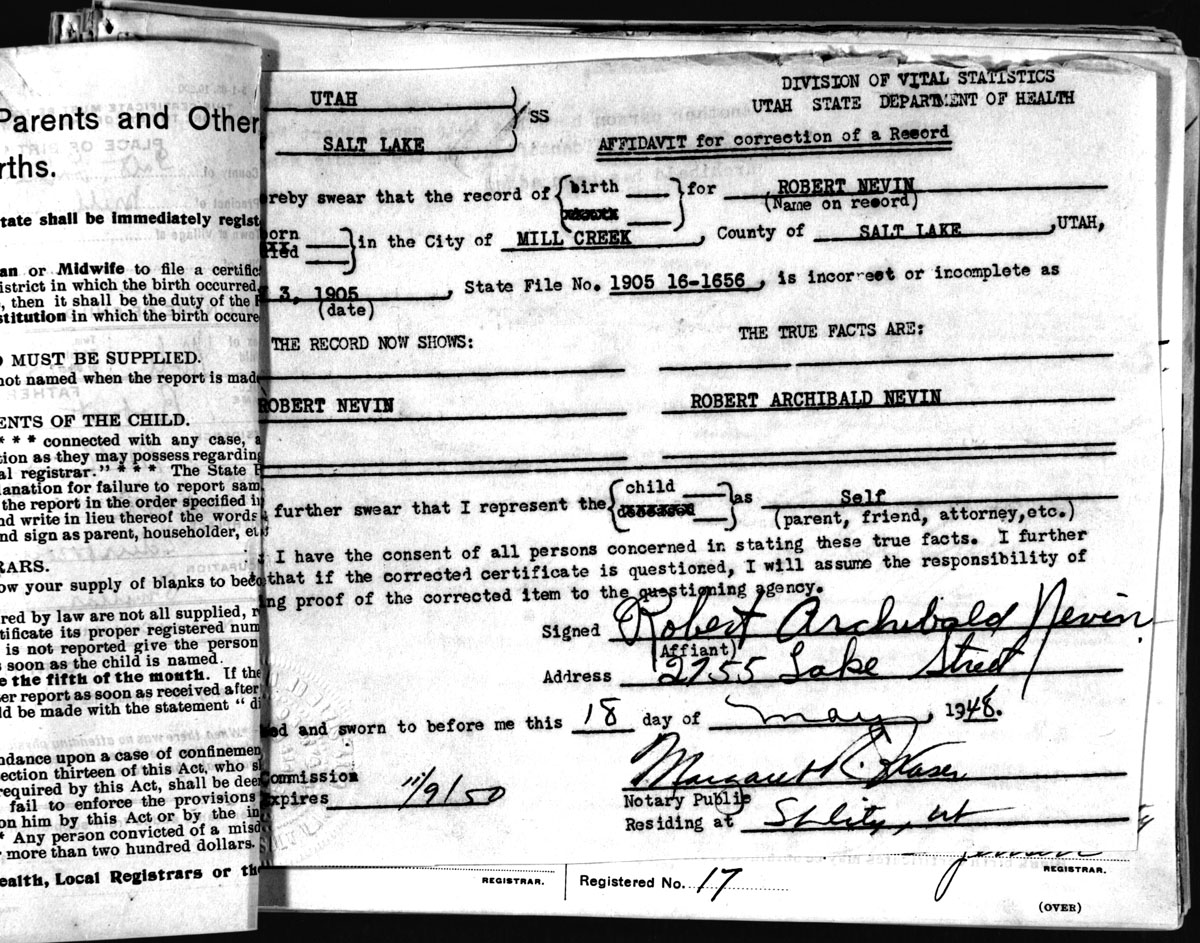 Parents and Other
rths.
tate shall be immediately regist
an or Midwife to file a certific
istrict in which the birth occurred,
, then it shall be the duty of the
stitution in which the birth occure
MUST BE SUPPLIED.
not named when the report is mad
ENTS OF THE CHILD.
* * * connected with any case, a
tion as they may possess regarding
al registrar." * * * The State
lanation for failure to report sam
the report in the order specified i
nd write in lieu thereof the words
nd sign as parent, householder, et
RARS.
ow your supply of blanks to bec
red by law are not all supplied, r
tificate its proper registered num
is not reported give the person
s soon as the child is named.
e the fifth of the month. If the
er report as soon as received after
ld be made with the statement " di
ndance upon a case of confinemen
ection thirteen of this Act, who s
required by this Act, shall be dee
fail to enforce the provisions
on him by this Act or by the in
* Any person convicted of a misd
more than two hundred dollars.
ealth, Local Registrars or th
DIVISION OF VITAL STATISTICS
UTAH STATE DEPARTMENT OF HEALTH
UTAH
SS
SALT LAKE
AFFIDAVIT for correction of a Record
reby swear that the record of birth for ROBERT NEVIN
(Name on record)
born in the City of MILL CREEK, County of SALT LAKE, UTAH,
3, 1905, State File No. 1905 16-1656, is incorrect or incomplete as
(date)
THE RECORD NOW SHOWS: THE TRUE FACTS ARE:
ROBERT NEVIN ROBERT ARCHIBALD NEVIN
further swear that I represent the child as Self
deceased (parent, friend, attorney, etc.)
I have the consent of all persons concerned in stating these true facts. I further
that if the corrected certificate is questioned, I will assume the responsibility of
ng proof of the corrected item to the questioning agency.
Signed Robert Archibald Nevin
(Affiant)
Address 2755 Lake Street
ed and sworn to before me this 18 day of May, 1948.
Margaret R. Fraser
Commission
Expires 11/9/50
Notary Public
Residing at S L City, Ut
REGISTRAR. Registered No. 17 REGISTRAR.
(OVER)